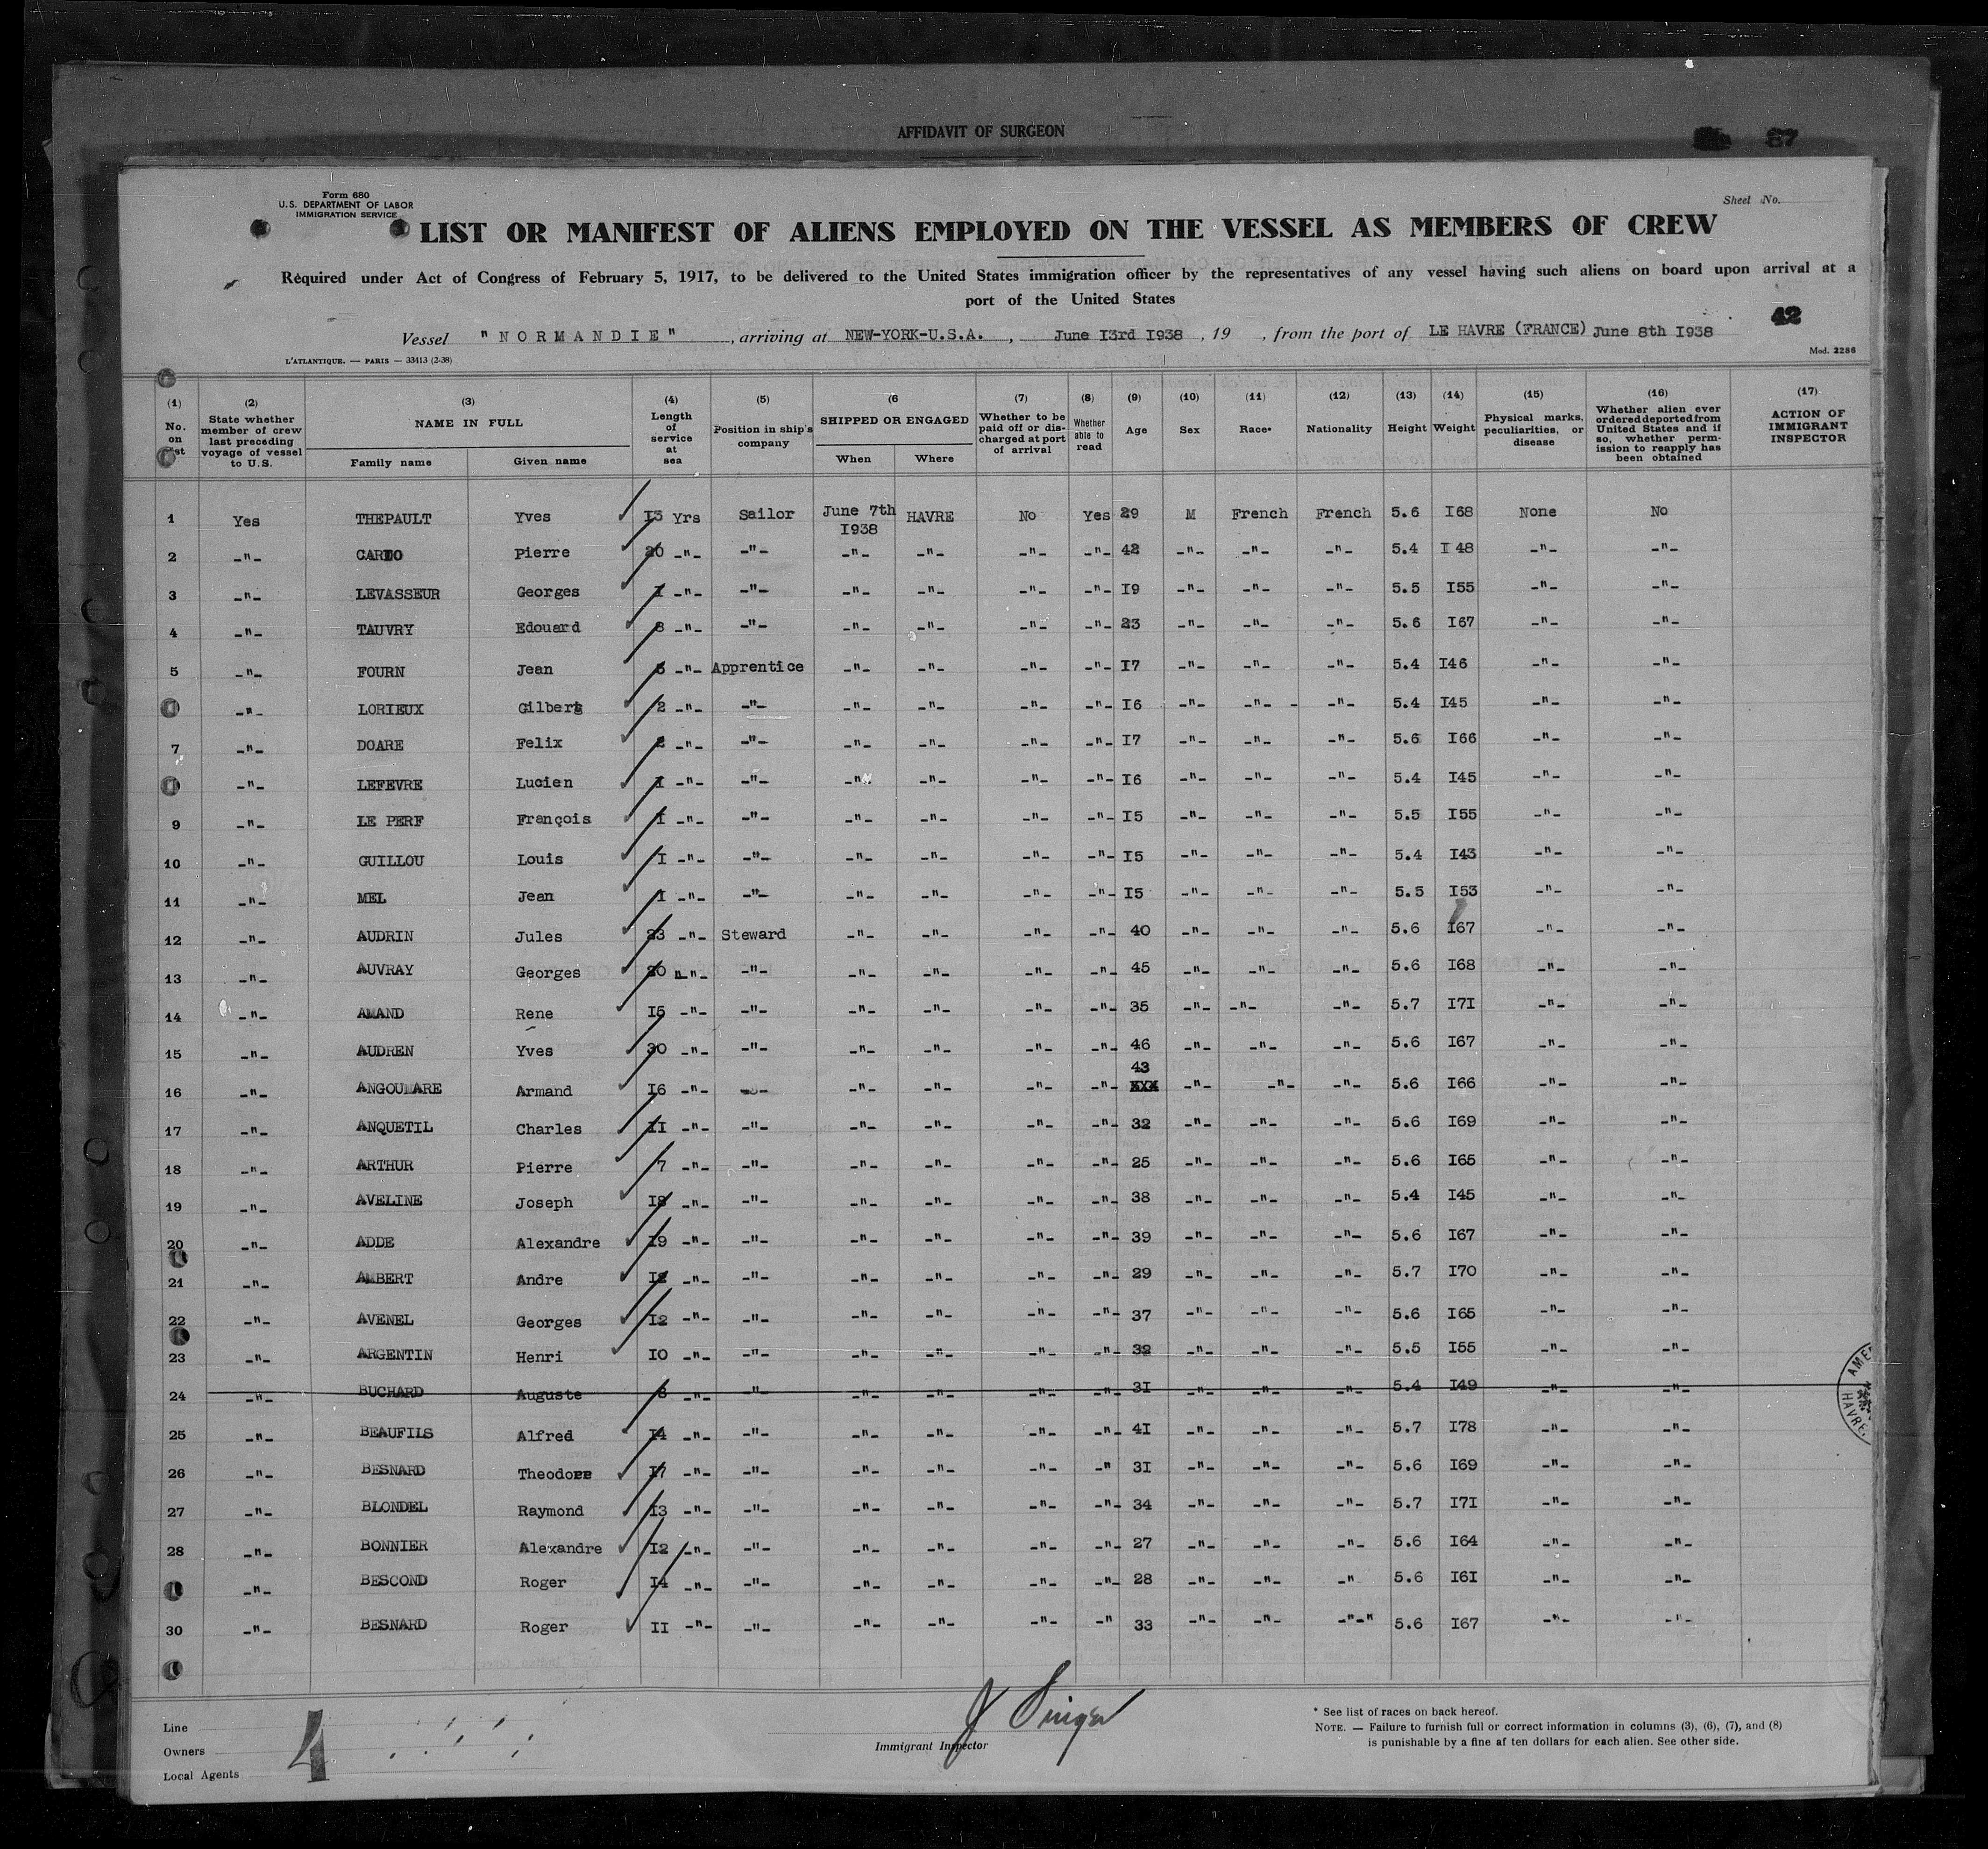 AFFIDAVIT OF SURGEON
87
Form 680
U.S. DEPARTMENT OF LABOR
IMMIGRATION SERVICE
Sheet No.
LIST OR MANIFEST OF ALIENS EMPLOYED ON THE VESSEL AS MEMBERS OF CREW
Required under Act of Congress of February 5, 1917, to be delivered to the United States immigration officer by the representatives of any vessel having such aliens on board upon arrival at a
port of the United States
42
Vessel "NORMANDIE", arriving at NEW-YORK-U.S.A., June I3rd I938, 19 , from the port of LE HAVRE (FRANCE) June 8th I938
L'ATLANTIQUE. — PARIS — 33413 (2-38)
Mod. 2286
(1) No. on list (2) State whether member of crew last preceding voyage of vessel to U.S. (3) NAME IN FULL Family name Given name (4) Length of service at sea (5) Position in ship's company (6 SHIPPED OR ENGAGED When Where (7) Whether to be paid off or discharged at port of arrival (8) Whether able to read (9) Age (10) Sex (11) Race* (12) Nationality (13) Height (14) Weight (15) Physical marks, peculiarities, or disease (16) Whether alien ever ordered deported from United States and if so, whether permission to reapply has been obtained (17) ACTION OF IMMIGRANT INSPECTOR
1 Yes THEPAULT Yves I3 Yrs Sailor June 7th I938 HAVRE No Yes 29 M French French 5.6 I68 None No
2 -"- Pierre 20 -"- -"- -"- -"- -"- -"- 42 -"- -"- -"- 5.4 I48 -"- -"-
3 -"- LEVASSEUR Georges I -"- -"- -"- -"- -"- -"- I9 -"- -"- -"- 5.5 I55 -"- -"-
4 -"- TAUVRY Edouard 8 -"- -"- -"- -"- -"- -"- 23 -"- -"- -"- 5.6 I67 -"- -"-
5 -"- FOURN Jean -"- Apprentice -"- -"- -"- -"- I7 -"- -"- -"- 5.4 I46 -"- -"-
-"- LORIEUX Gilbert 2 -"- -"- -"- -"- -"- -"- I6 -"- -"- -"- 5.4 I45 -"- -"-
7 -"- DOARE Felix 2 -"- -"- -"- -"- -"- -"- I7 -"- -"- -"- 5.6 I66 -"- -"-
-"- LEFEVRE Lucien I -"- -"- -"- -"- -"- -"- I6 -"- -"- -"- 5.4 I45 -"- -"-
9 -"- LE PERF François I -"- -"- -"- -"- -"- -"- I5 -"- -"- -"- 5.5 I55 -"- -"-
10 -"- GUILLOU Louis I -"- -"- -"- -"- -"- -"- I5 -"- -"- -"- 5.4 I43 -"- -"-
11 -"- MEL Jean I -"- -"- -"- -"- -"- -"- I5 -"- -"- -"- 5.5 I53 -"- -"-
12 -"- AUDRIN Jules 23 -"- Steward -"- -"- -"- -"- 40 -"- -"- -"- 5.6 I67 -"- -"-
13 -"- AUVRAY Georges 20 -"- -"- -"- -"- -"- -"- 45 -"- -"- -"- 5.6 I68 -"- -"-
14 -"- AMAND Rene I5 -"- -"- -"- -"- -"- -"- 35 -"- -"- -"- 5.7 I7I -"- -"-
15 -"- AUDREN Yves 30 -"- -"- -"- -"- -"- -"- 46 -"- -"- -"- 5.6 I67 -"- -"-
16 -"- ANGOUMARE Armand I6 -"- -"- -"- -"- -"- -"- 43 XXX -"- -"- -"- 5.6 I66 -"- -"-
17 -"- ANQUETIL Charles II -"- -"- -"- -"- -"- -"- 32 -"- -"- -"- 5.6 I69 -"- -"-
18 -"- ARTHUR Pierre 7 -"- -"- -"- -"- -"- -"- 25 -"- -"- -"- 5.6 I65 -"- -"-
19 -"- AVELINE Joseph I8 -"- -"- -"- -"- -"- -"- 38 -"- -"- -"- 5.4 I45 -"- -"-
20 -"- ADDE Alexandre I9 -"- -"- -"- -"- -"- -"- 39 -"- -"- -"- 5.6 I67 -"- -"-
21 -"- AMBERT Andre I2 -"- -"- -"- -"- -"- -"- 29 -"- -"- -"- 5.7 I70 -"- -"-
22 -"- AVENEL Georges I2 -"- -"- -"- -"- -"- -"- 37 -"- -"- -"- 5.6 I65 -"- -"-
23 -"- ARGENTIN Henri I0 -"- -"- -"- -"- -"- -"- 32 -"- -"- -"- 5.5 I55 -"- -"-
24 -"- BUCHARD Auguste 8 -"- -"- -"- -"- -"- -"- 3I -"- -"- -"- 5.4 I49 -"- -"-
25 -"- BEAUFILS Alfred I4 -"- -"- -"- -"- -"- -"- 4I -"- -"- -"- 5.7 I78 -"- -"-
26 -"- BESNARD Theodore I7 -"- -"- -"- -"- -"- -" 3I -"- -"- -"- 5.6 I69 -"- -"-
27 -"- BLONDEL Raymond I3 -"- -"- -"- -"- -"- -"- 34 -"- -"- -"- 5.7 I7I -"- -"-
28 -"- BONNIER Alexandre I2 -"- -"- -"- -"- -"- -"- 27 -"- -"- -"- 5.6 I64 -"- -"-
-"- BESCOND Roger I4 -"- -"- -"- -"- -"- -"- 28 -"- -"- -" 5.6 I6I -"- -"-
30 -"- BESNARD Roger II -"- -"- -"- -"- -"- -" 33 -"- -"- -"-" 5.6 I67 -"- -"-
AME
HAVRE.
Line
Owners
Local Agents
4
J Singer
Immigrant Inspector
* See list of races on back hereof.
NOTE. — Failure to furnish full or correct information in columns (3), (6), (7), and (8)
is punishable by a fine af ten dollars for each alien. See other side.